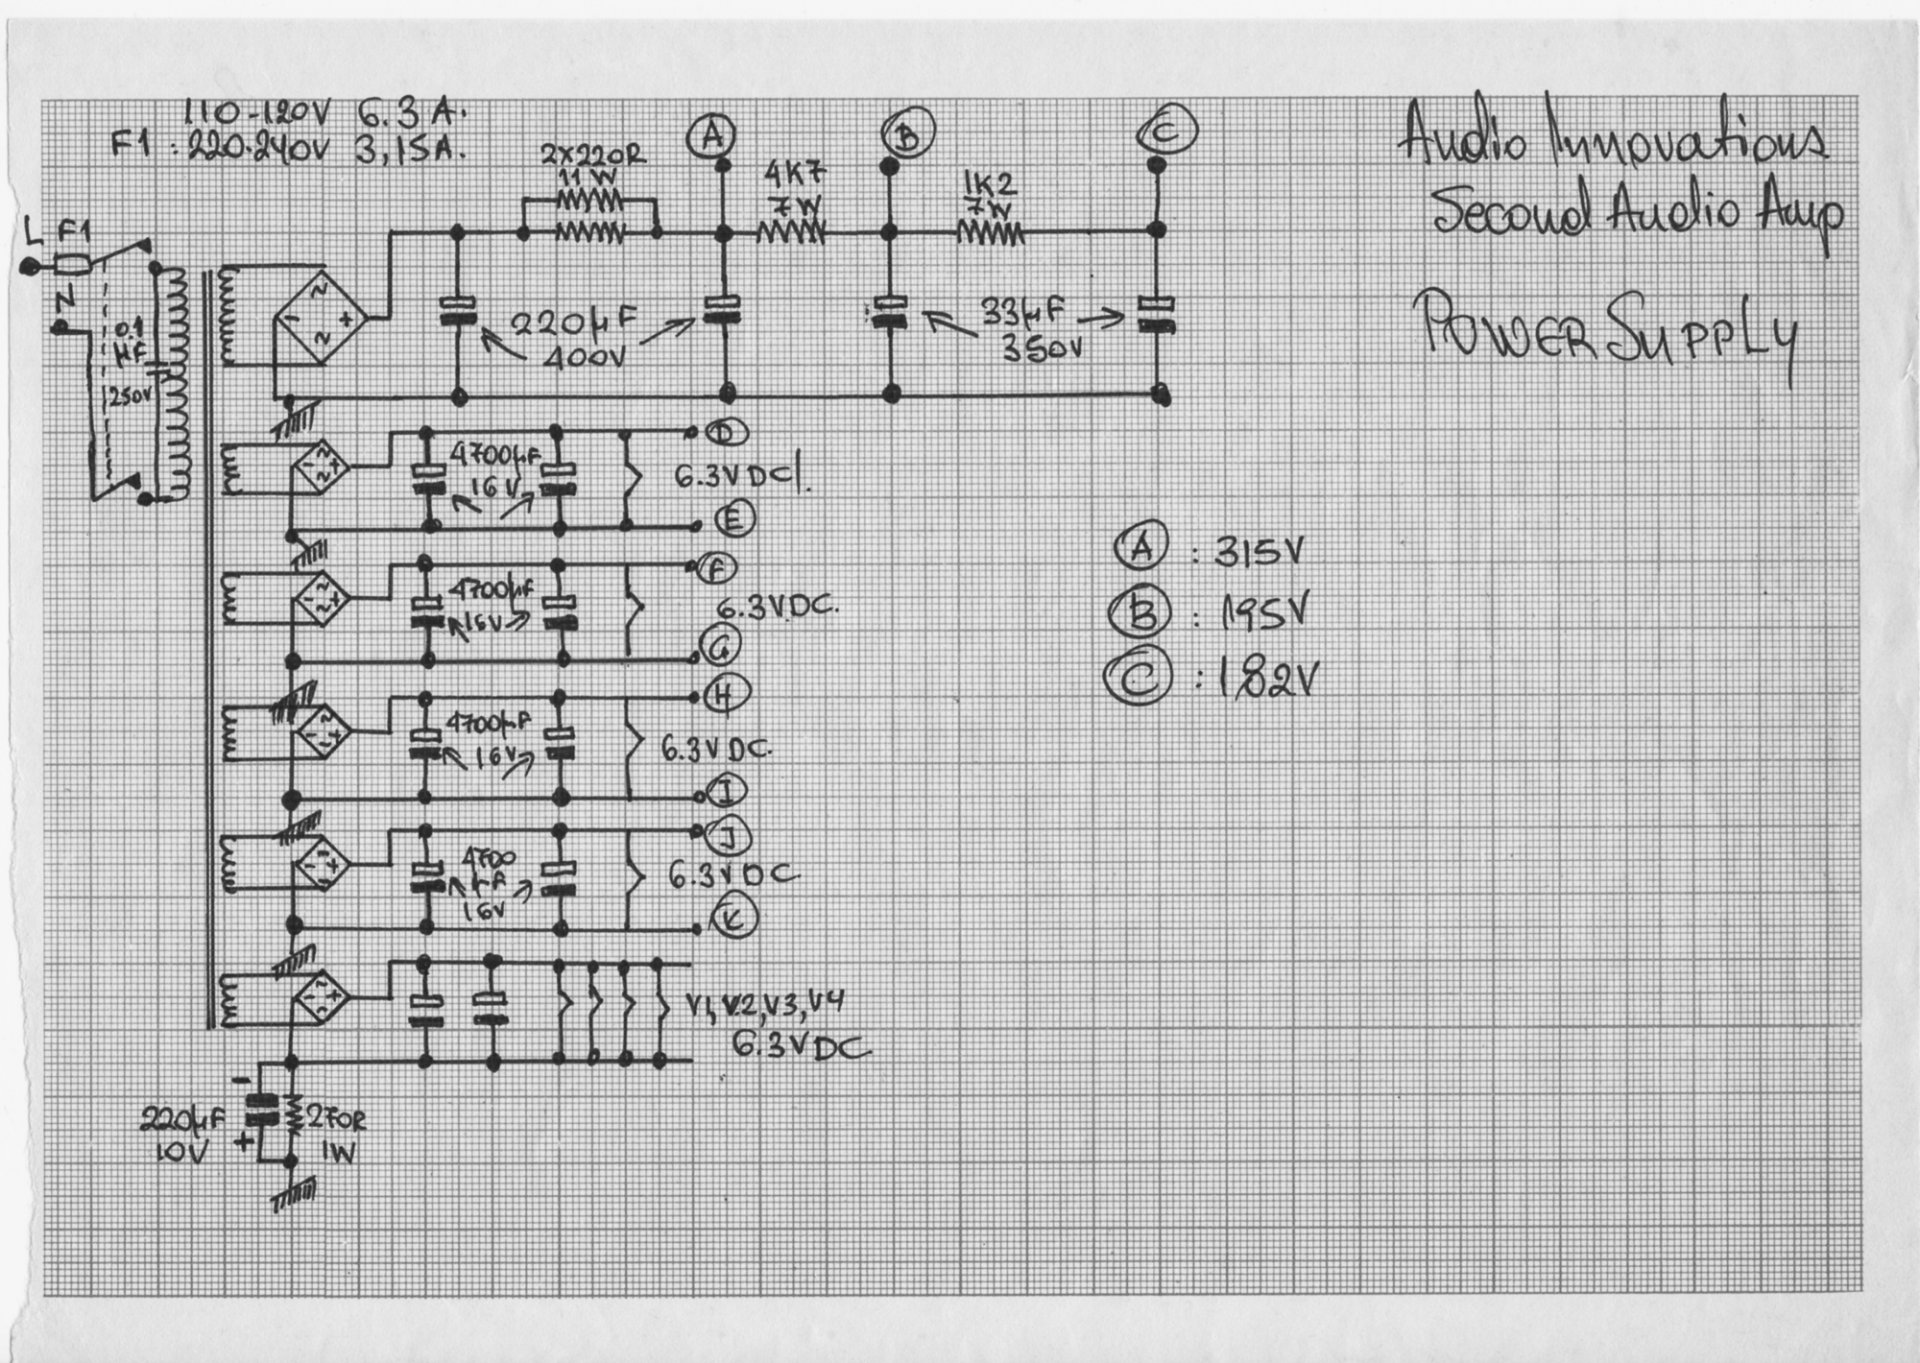 110-120V 6.3A.
F1 : 220-240V 3,15A.
Audio Innovations
Second Audio Amp
POWER SUPPLY
L F1
N
0.1
µF
250V
2x220R
11W
A
4K7
7W
B
1K2
7W
C
220µF
400V
33µF
350V
~
~
-
+
4700µF
16V
D
6.3V DC.
E
4700µF
16V
F
6.3V DC.
G
4700µF
16V
H
6.3V DC.
I
4700
µF
16V
J
6.3V DC
K
V1, V2, V3, V4
6.3V DC.
-
220µF
10V
+
270R
1W
A : 315V
B : 195V
C : 182V